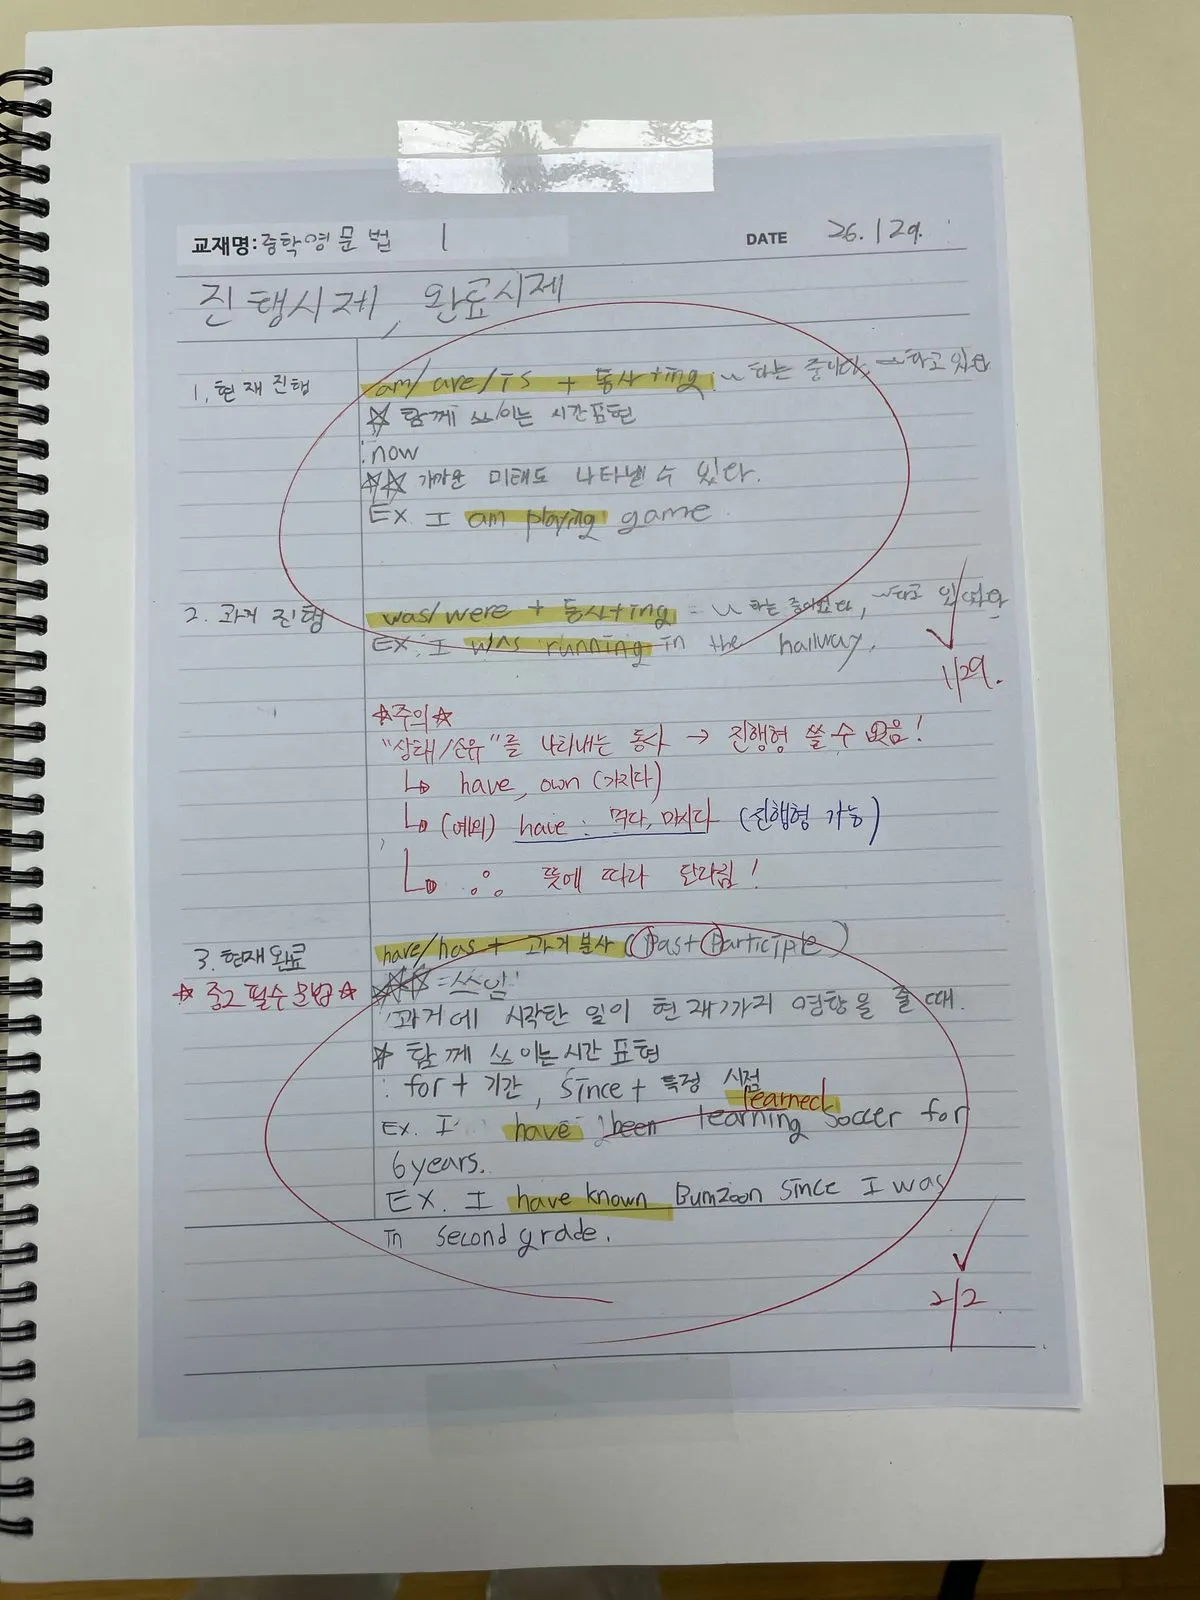 교재명: 중학영문법 1
DATE 26. 1 29.
진행시제, 완료시제
1. 현재 진행
am/are/is + 동사+ing : ~ 하는 중이다, ~하고 있다
☆ 함께 쓰이는 시간표현
: now
☆☆ 가까운 미래도 나타낼 수 있다.
Ex. I am playing game.
2. 과거 진행
was/were + 동사+ing = ~ 하는 중이었다, ~하고 있었다
EX. I was running in the hallway.
1/29.
☆주의☆
"상태/소유"를 나타내는 동사 → 진행형 쓸 수 없음!
↳ have, own (가지다)
↳ (예외) have : 먹다, 마시다 (진행형 가능)
↳ ∴ 뜻에 따라 달라짐!
3. 현재완료
have/has + 과거분사 (Past Participle)
☆중2 필수문법☆
☆☆☆ = 쓰임
과거에 시작한 일이 현재까지 영향을 줄 때.
☆ 함께 쓰이는 시간 표현
: for + 기간, since + 특정 시점
learned
Ex. I have been learning soccer for
6 years.
EX. I have known Bumzoon since I was
in second grade.
2/2